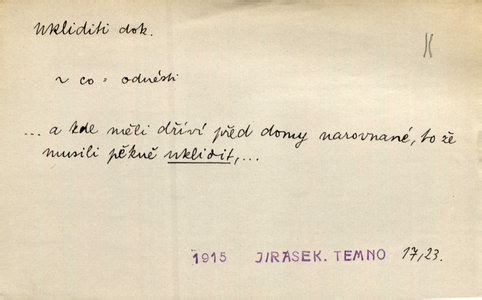 ukliditi dok.
~ co = odnésti
... a kde měli dříví před domy narovnané, to že
musili pěkně uklidit, ...
1915 JIRASEK. TEMNO 17, 23.